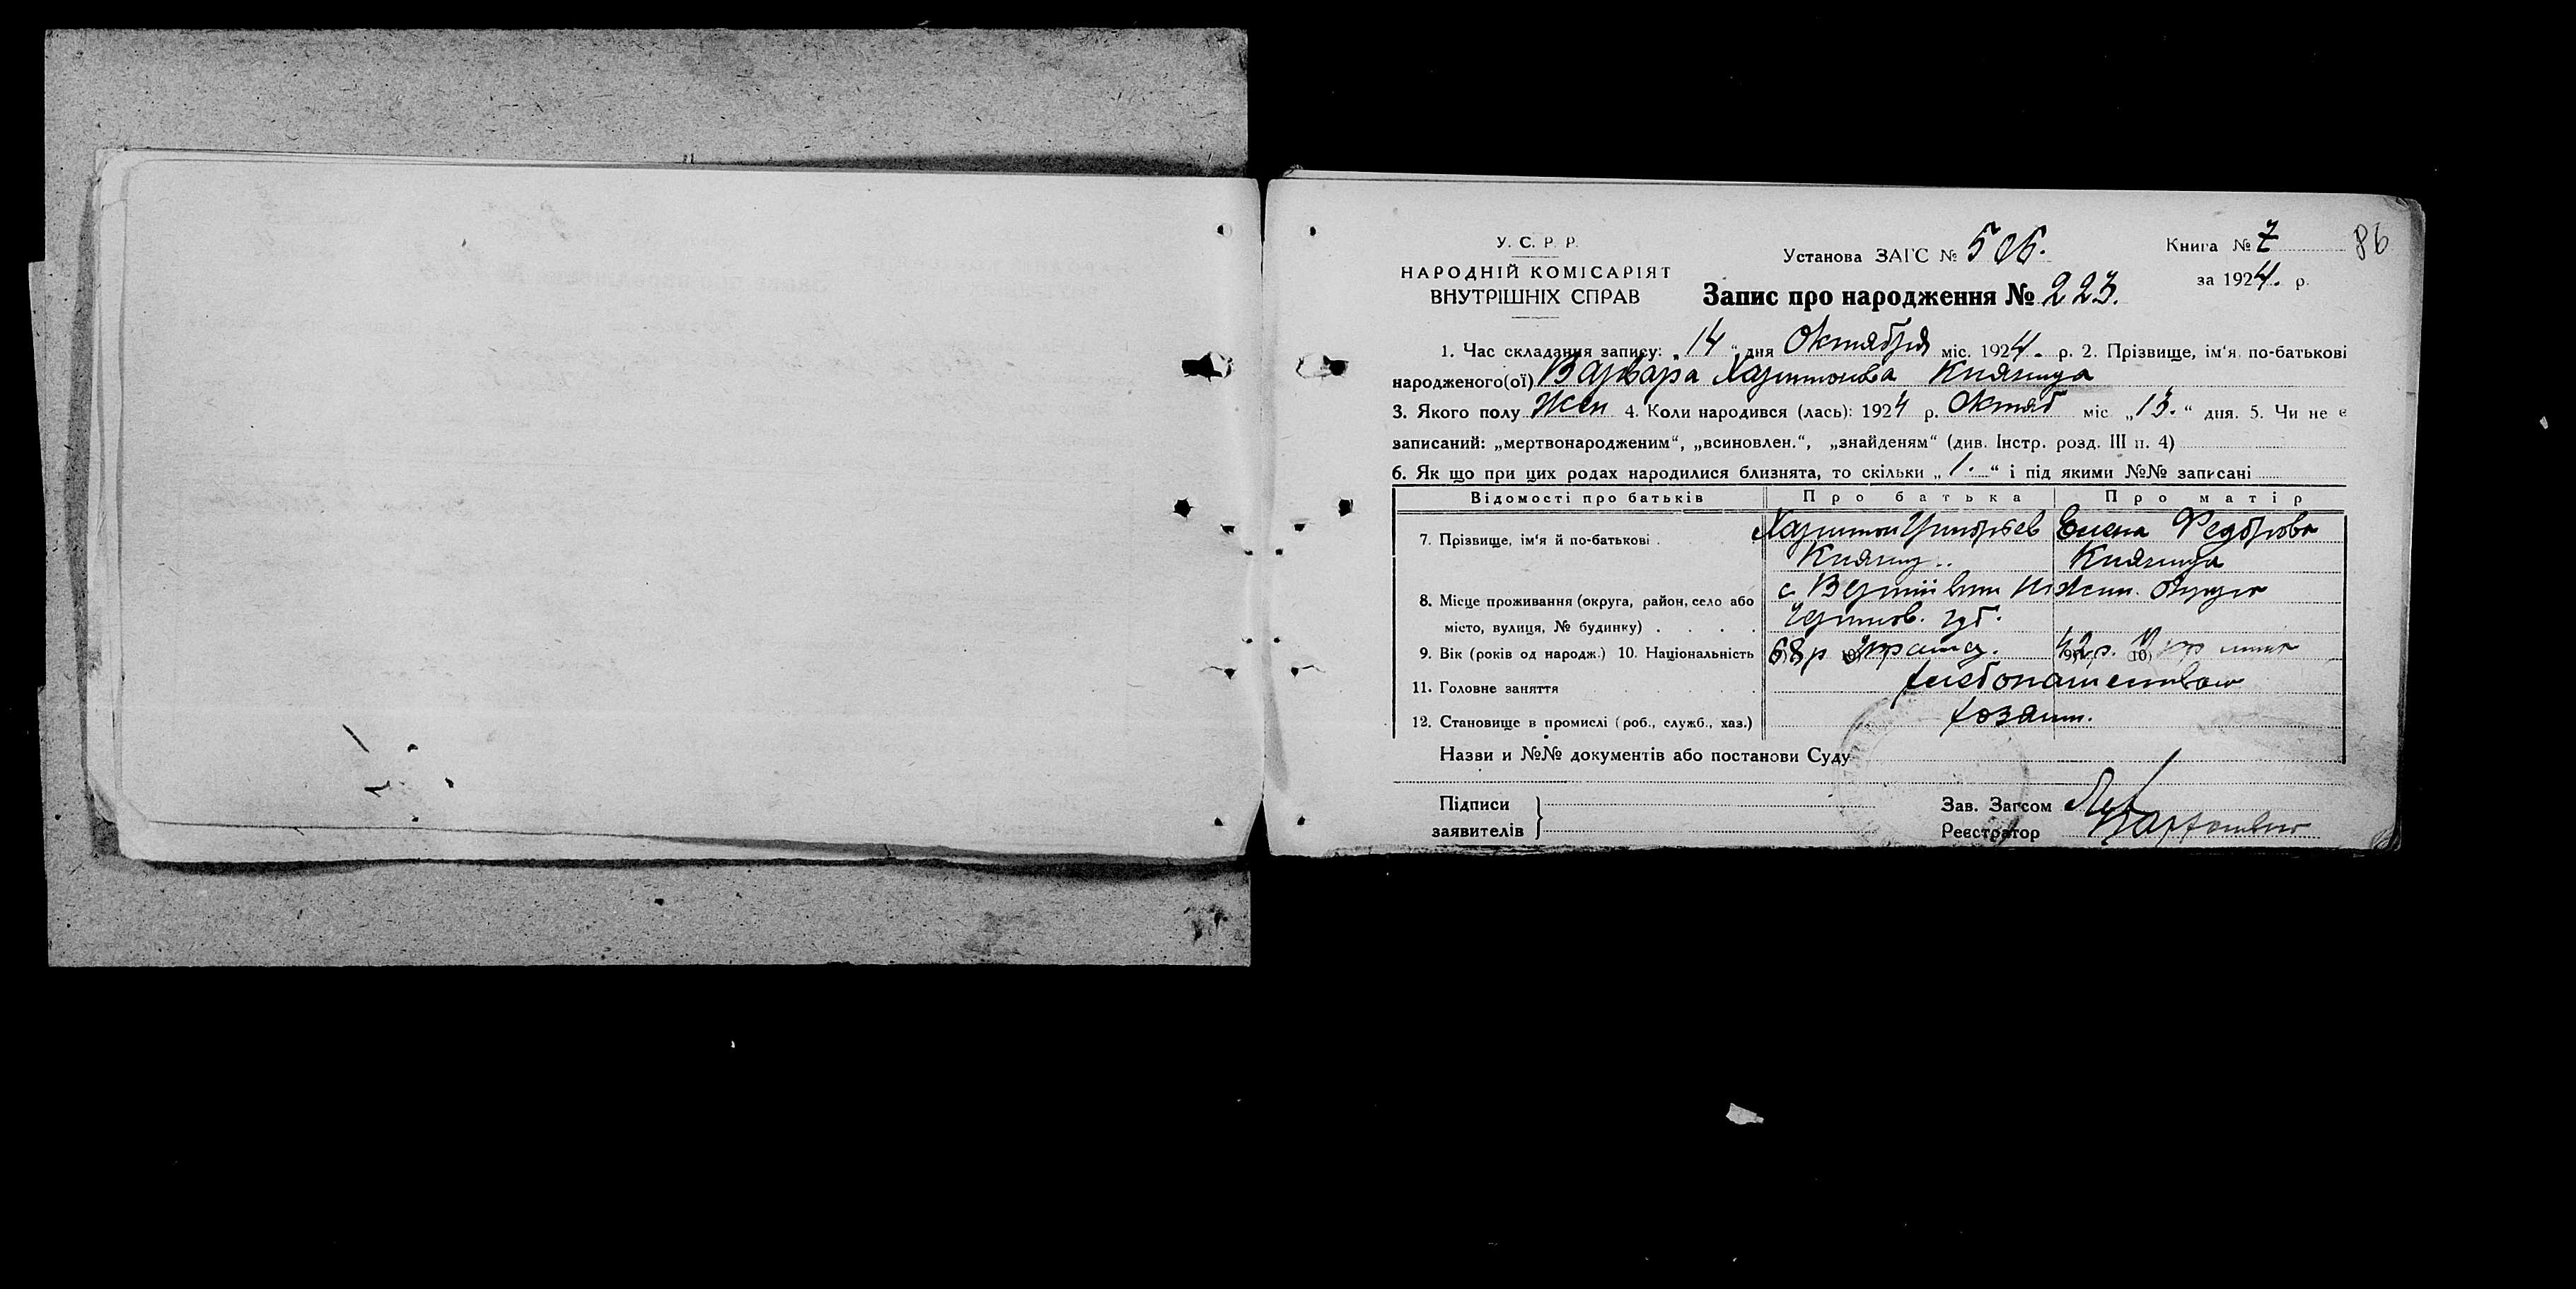 У. С. Р. Р.
НАРОДНІЙ КОМІСАРІЯТ
ВНУТРІШНІХ СПРАВ
Установа ЗАГС №
Запис про народження № 223.
Книга № 7
за 1924. р.
86
1. Час складання запису: „14“ дня Октября міс. 1924. р. 2. Прізвище, ім'я по-батькові
народженого(ої) Варвара Харитонова Княгица
3. Якого полу Жен 4. Коли народився (лась): 1924 р. Октяб міс „13.“ дня. 5. Чи не є
записаний: „мертвонародженим“, „всиновлен.“, „знайденям“ (див. Інстр. розд. III п. 4)
6. Як що при цих родах народилися близнята, то скільки „1.“ і під якими №№ записані
Відомості про батьків Про батька Про матір
7. Прізвище, ім'я й по-батькові Харитон Григорьев Елена Федорова
Княгиця
8. Місце проживання (округа, район, село або с Нежин. Округа
місто, вулиця, № будинку) Чернигов. губ.
9. Вік (років од народж.) 10. Національність 68 р 42 р.
11. Головне заняття хлебопашество
12. Становище в промислі (роб., служб., хаз.) хозяин.
Назви и №№ документів або постанови Суду
Підписи
заявителів
Зав. Загсом
Реєстратор